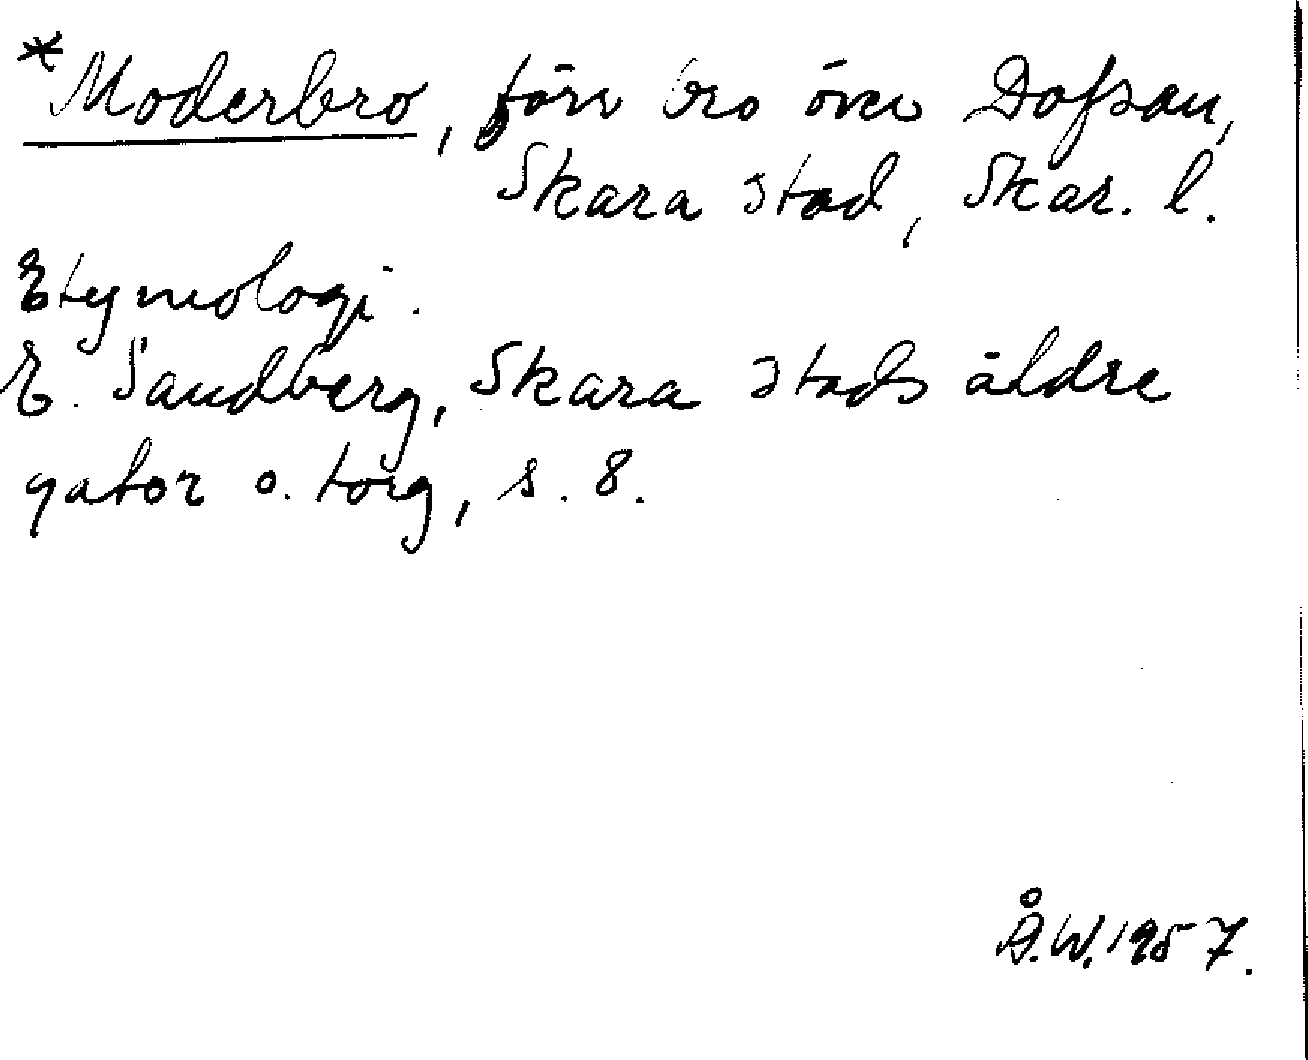 *Moderbro, förr bro över Dofsan,
Skara stad, Skar. l.
Etymologi.
E. Sandberg, Skara stads äldre
gator o. torg, s. 8.
Å.W. 1957.